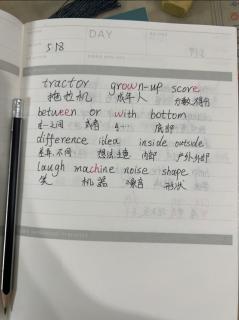 DAY
5.18
tractor grown-up score
拖拉机 成年人 分数,得分
between or with bottom
在…之间 或者 底部
difference idea inside outside
差异,不同 想法,主意 内部
laugh machine noise shape
笑 机器 噪音 形状